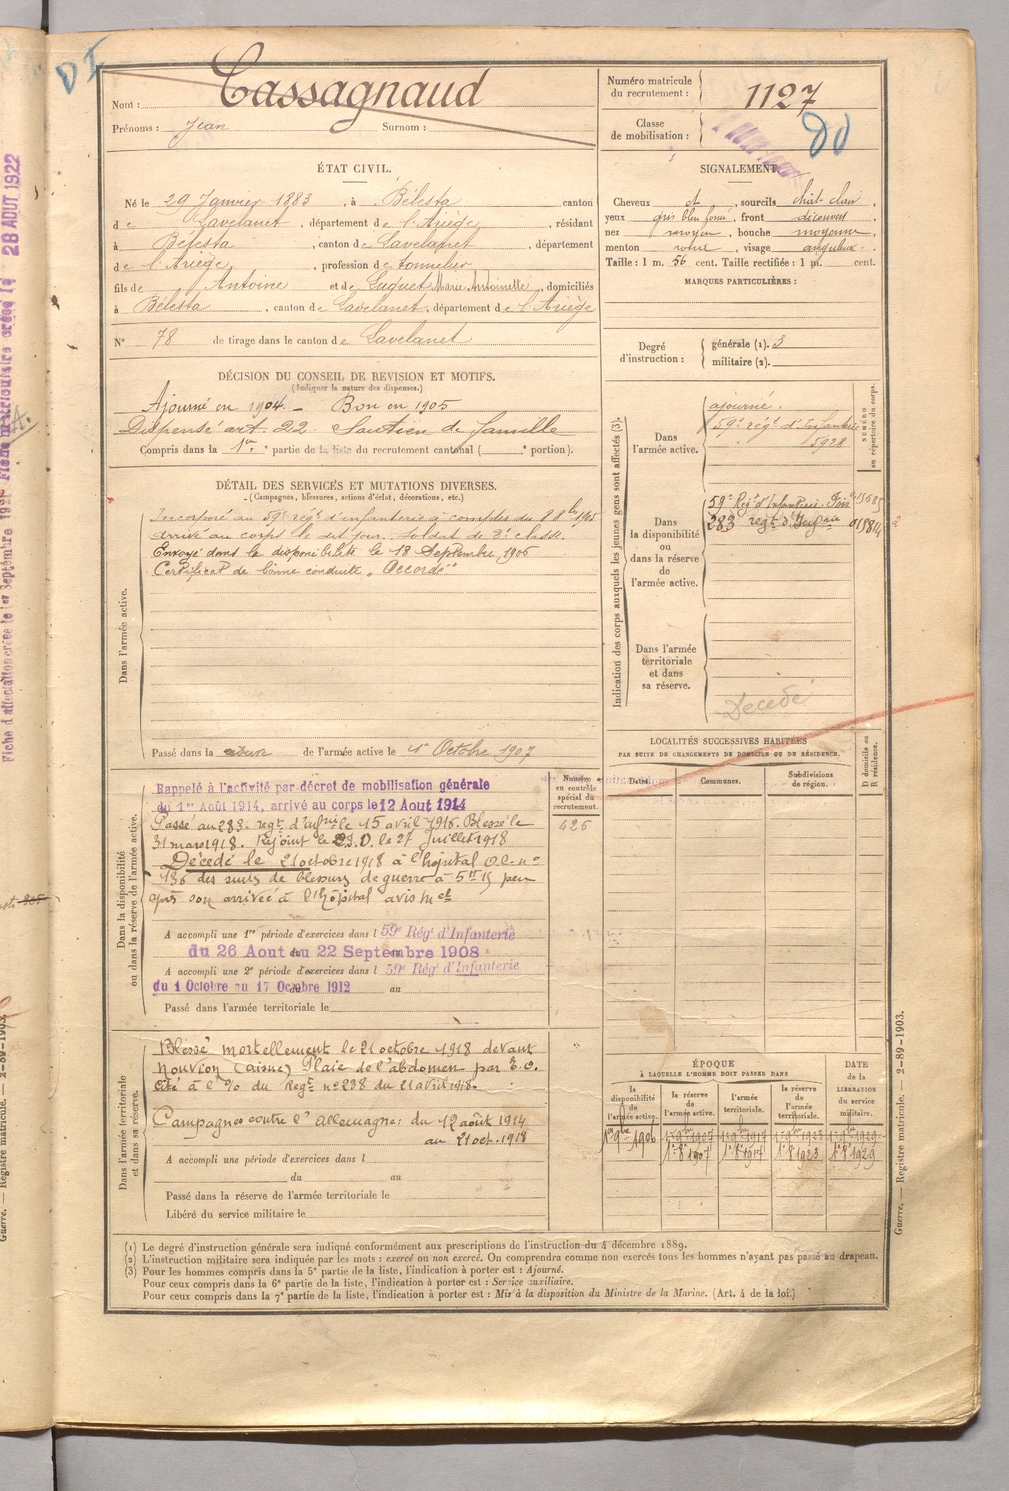 DI
Nom : Cassagnaud
Prénoms : Jean Surnom :
Numéro matricule du recrutement : 1127
Classe de mobilisation :
ÉTAT CIVIL.
Né le 29 Janvier 1883, à Bélesta canton
de Lavelanet, département de l'Ariège, résidant
à Bélesta, canton de Lavelanet, département
de l'Ariège, profession de tonnelier
fils de Antoine et de Luguet Marie Antoinette, domiciliés
à Bélesta, canton de Lavelanet, département de l'Ariège
N° 78 de tirage dans le canton de Lavelanet
SIGNALEMENT.
Cheveux et, sourcils chât clair,
yeux gris bleu foncé, front découvert
nez moyen, bouche moyenne,
menton rond, visage anguleux.
Taille : 1 m. 56 cent. Taille rectifiée : 1 m. cent.
MARQUES PARTICULIÈRES :
Degré d'instruction : générale (1). 3
militaire (2).
DÉCISION DU CONSEIL DE REVISION ET MOTIFS.
(Indiquer la nature des dispenses.)
Ajourné en 1904. – Bon en 1905
Dispensé art. 22 Soutien de famille
Compris dans la 1re partie de la liste du recrutement cantonal ( portion).
DÉTAIL DES SERVICES ET MUTATIONS DIVERSES.
(Campagnes, blessures, actions d'éclat, décorations, etc.)
Dans l'armée active.
Incorporé au 59e régt d'infanterie à compter du 8 8bre 1905
arrivé au corps le dit jour. Soldat de 2e classe.
Envoyé dans la disponibilité le 18 Septembre 1906
Certificat de bonne conduite "Accordé"
Passé dans la réserve de l'armée active le 1er Octobre 1907
Indication des corps auxquels les jeunes gens sont affectés (3).
NUMÉRO au répertoire du corps.
Dans l'armée active.
ajourné.
59e régt d'Infanterie
5928
Dans la disponibilité ou dans la réserve de l'armée active.
59e Régt d'Infanterie Foix
283 regt d'Infrie
Dans l'armée territoriale et dans sa réserve.
Décédé
LOCALITÉS SUCCESSIVES HABITÉES
PAR SUITE DE CHANGEMENTS DE DOMICILE OU DE RÉSIDENCE.
D domicile ou R résidence.
Dates. Communes. Subdivisions de région.
Numéro au contrôle spécial du recrutement.
426
Dans la disponibilité ou dans la réserve de l'armée active.
Rappelé à l'activité par décret de mobilisation générale
du 1er Août 1914, arrivé au corps le 12 Aout 1914
Passé au 283e regt d'infrie le 15 avril 1916. Blessé le
31 mars 1918. Rejoint le D.D. le 27 Juillet 1918
Décédé le 21 octobre 1918 à l'hôpital O.E. n°
136 des suites de blessures de guerre à 5h 15 peu
après son arrivée à l'hôpital avis mel
A accompli une 1re période d'exercices dans l 59e Régt d'Infanterie
du 26 Aout au 22 Septembre 1908
A accompli une 2e période d'exercices dans l 59e Régt d'Infanterie
du 1 Octobre au 17 Octobre 1912 au
Passé dans l'armée territoriale le
Dans l'armée territoriale et dans sa réserve.
Blessé mortellement le 21 octobre 1918 devant
Nouvion (Aisne) Plaie de l'abdomen par E.O.
Cité à l'O/ du Regt n° 238 du 21 avril 1918.
Campagnes contre l'Allemagne : du 12 août 1914
au 21 oct. 1918
A accompli une période d'exercices dans l
du au
Passé dans la réserve de l'armée territoriale le
Libéré du service militaire le
ÉPOQUE
À LAQUELLE L'HOMME DOIT PASSER DANS
DATE de la LIBÉRATION du service militaire.
la disponibilité de l'armée active. la réserve de l'armée active. l'armée territoriale. la réserve de l'armée territoriale.
1er 9bre 1906 1er 9bre 1907 1er 9bre 1917 1er 9bre 1923 1er 9bre 1929
1er 8bre 1907 1er 8bre 1917 1er 8bre 1923 1er 8bre 1929
(1) Le degré d'instruction générale sera indiqué conformément aux prescriptions de l'instruction du 4 décembre 1889.
(2) L'instruction militaire sera indiquée par les mots : exercé ou non exercé. On comprendra comme non exercés tous les hommes n'ayant pas passé au drapeau.
(3) Pour les hommes compris dans la 5e partie de la liste, l'indication à porter est : Ajourné.
Pour ceux compris dans la 6e partie de la liste, l'indication à porter est : Service auxiliaire.
Pour ceux compris dans la 7e partie de la liste, l'indication à porter est : Mis à la disposition du Ministre de la Marine. (Art. 4 de la loi.)
Guerre. — Registre matricule. — 2-89-1903.
28 AOUT 1922
Guerre. — Registre matricule. — 2-89-1903.